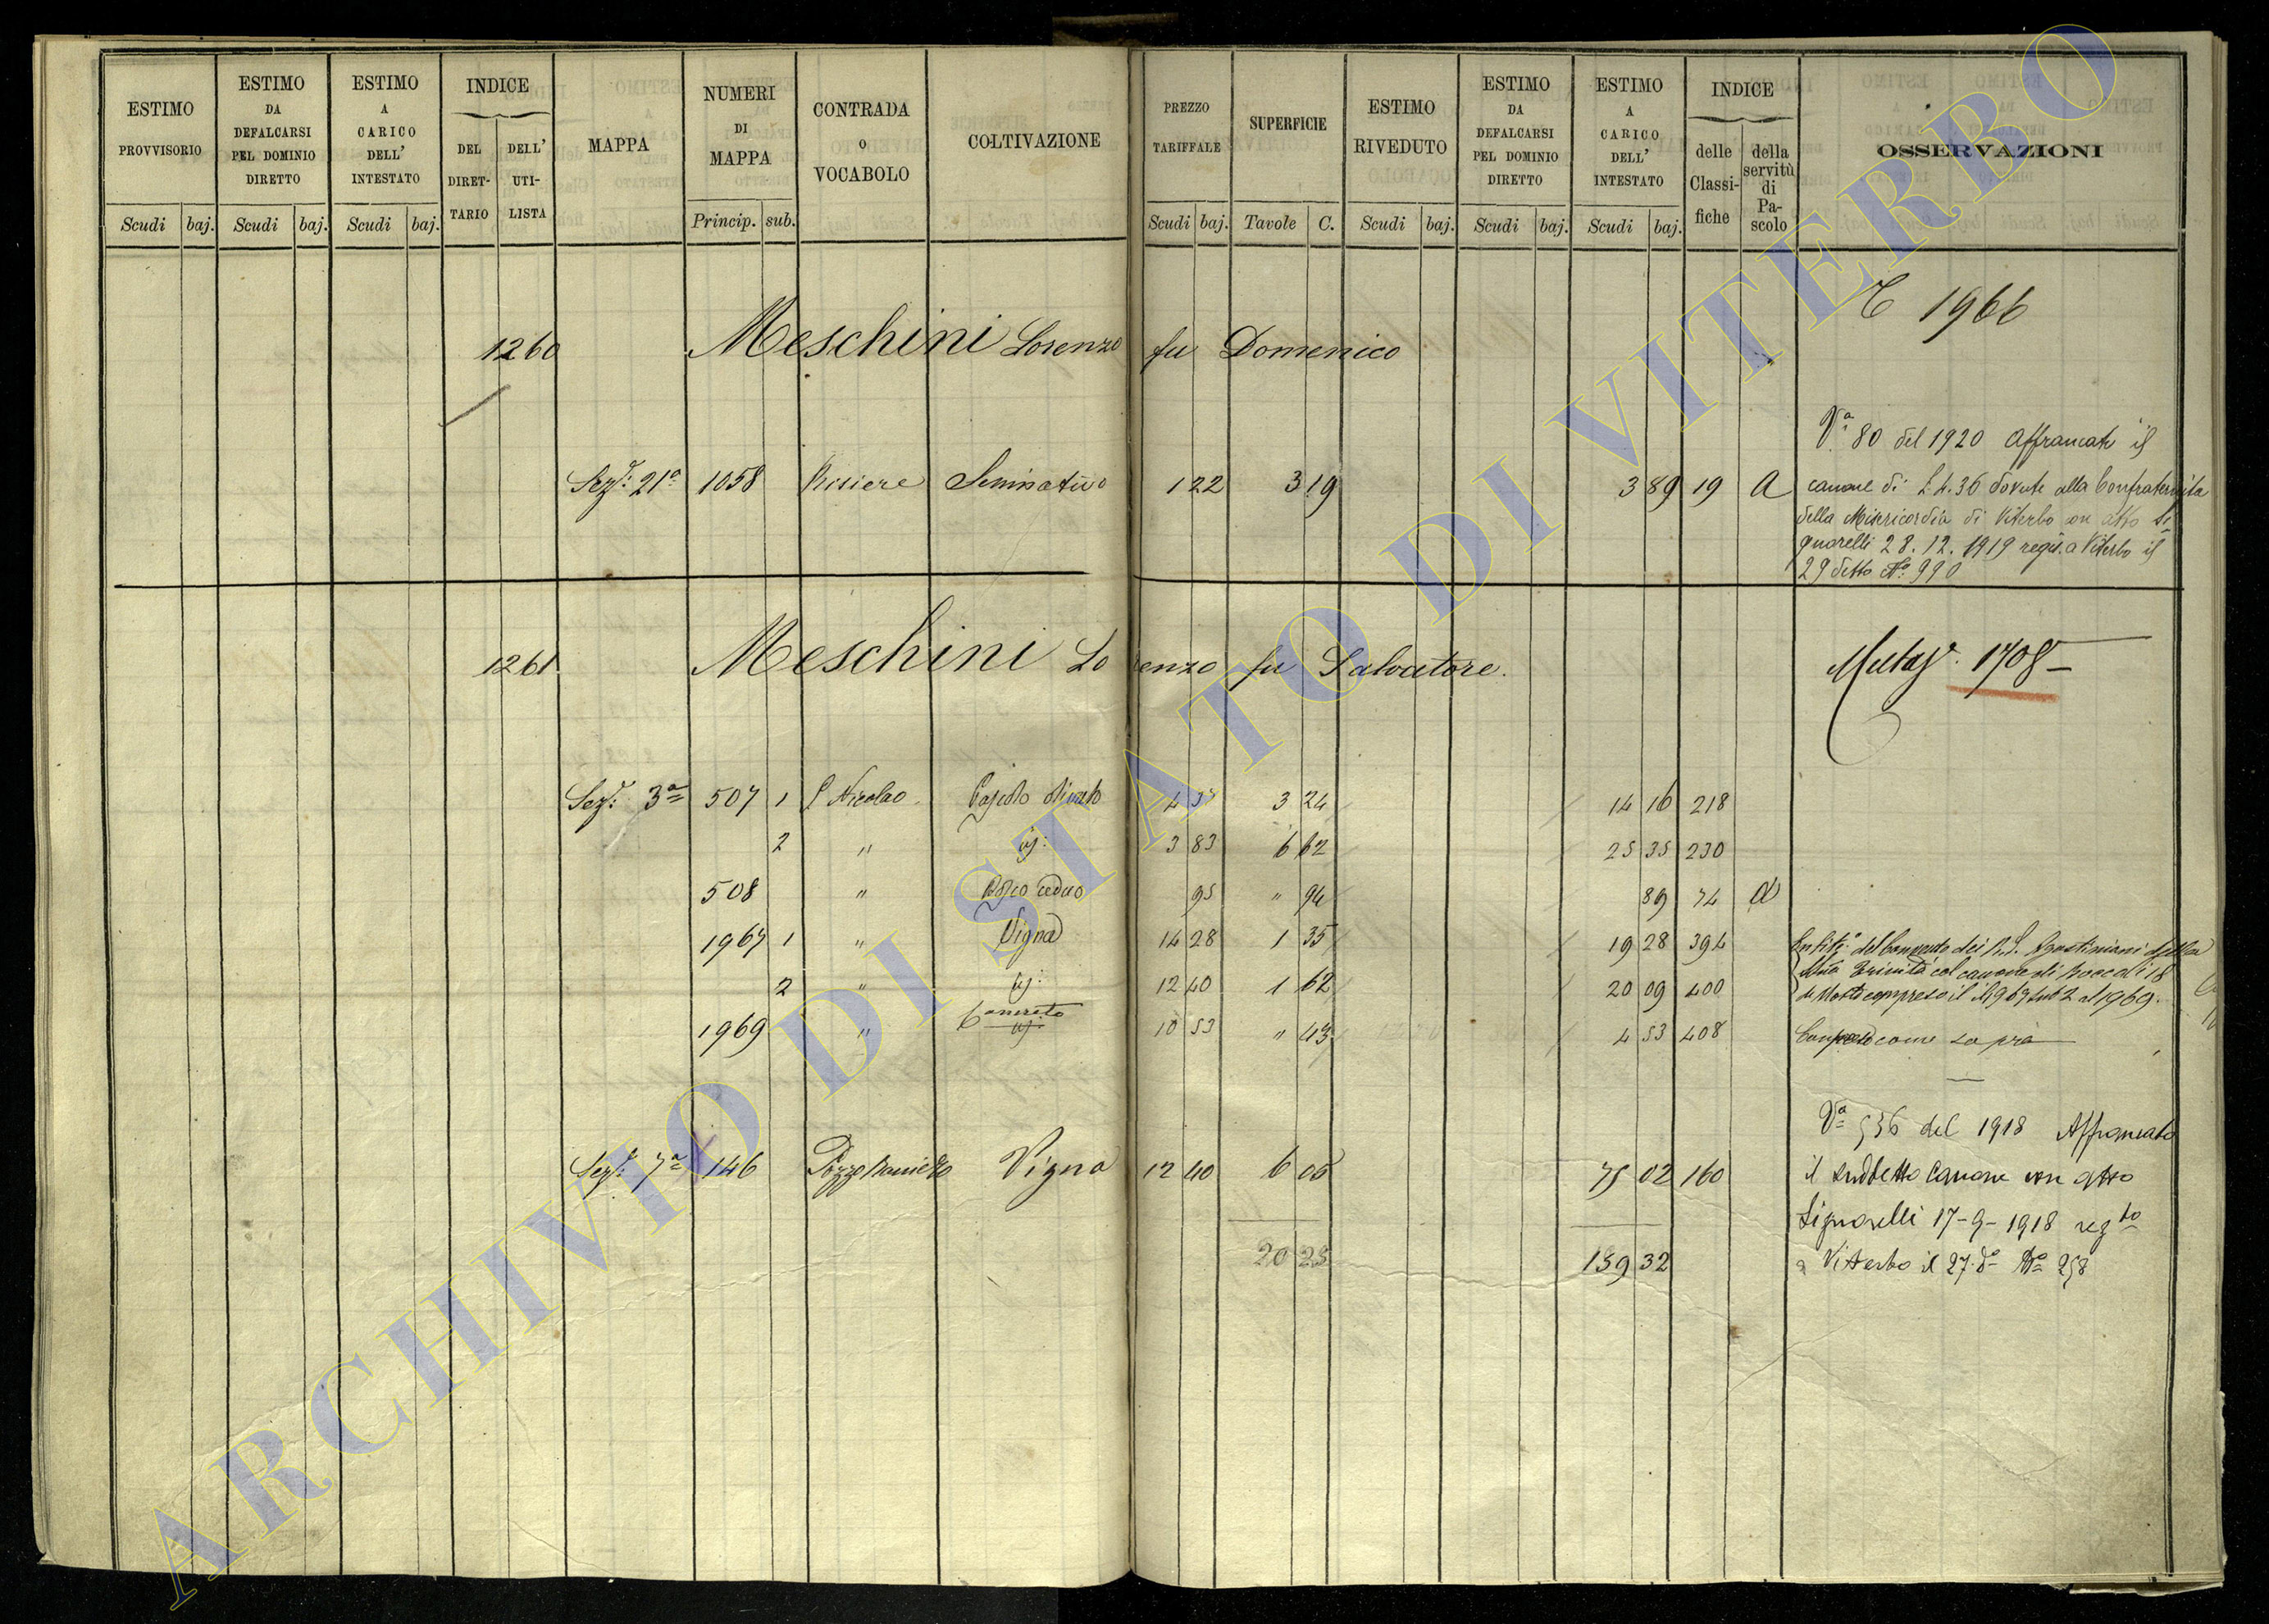 ESTIMO PROVVISORIO
Scudi baj.
ESTIMO DA DEFALCARSI PEL DOMINIO DIRETTO
Scudi baj.
ESTIMO A CARICO DELL' INTESTATO
Scudi baj.
INDICE
DEL DIRET-TARIO
DELL' UTI-LISTA
MAPPA
NUMERI DI MAPPA
Princip. sub.
CONTRADA O VOCABOLO
COLTIVAZIONE
PREZZO TARIFFALE
Scudi baj.
SUPERFICIE
Tavole C.
ESTIMO RIVEDUTO
Scudi baj.
ESTIMO DA DEFALCARSI PEL DOMINIO DIRETTO
Scudi baj.
ESTIMO A CARICO DELL' INTESTATO
Scudi baj.
INDICE
delle Classi-fiche
della servitù di Pa-scolo
OSSERVAZIONI
1966
1260 Meschini Lorenzo fu Domenico
Vª 80 del 1920 Affrancato il
Sezˢ. 21ª 1058 Risiere Seminativo 1 22 3 19 3 89 19 A canone di £ 4.36 dovute alla Confraternita
della Misericordia di Viterbo con atto Si-
gnorelli 28.12.1919 regis. a Viterbo il
29 detto Nº 990
1261 Meschini Lorenzo fu Salvatore.
1708
Sezˢ. 3ª 507 1 S Nicolao Pascolo olivato 4 37 3 24 14 16 218
2 " id: 3 83 6 62 25 35 230
508 " Bosco ceduo 95 " 94 89 74 A
1967 1 " Vigna 14 28 1 35 19 28 394 Enfitª del Convento dei R.P. Agostiniani della
SSma Trinità col canone di Boccali 18
2 " id: 12 40 1 62 20 09 400 di Mosto compreso il N 1967 sub 2 al 1969.
1969 " Canneto id. 10 53 " 43 4 53 408 Compreso come sopra
Vª 536 del 1918 Affrancato
Sezˢ. 7ª 146 Pozzo Vigna 12 40 6 05 75 02 160 il suddetto canone con atto
Signorelli 17-9-1918 regto
20 25 159 32 a Viterbo il 27 dº Nº 258
ARCHIVIO DI STATO DI VITERBO